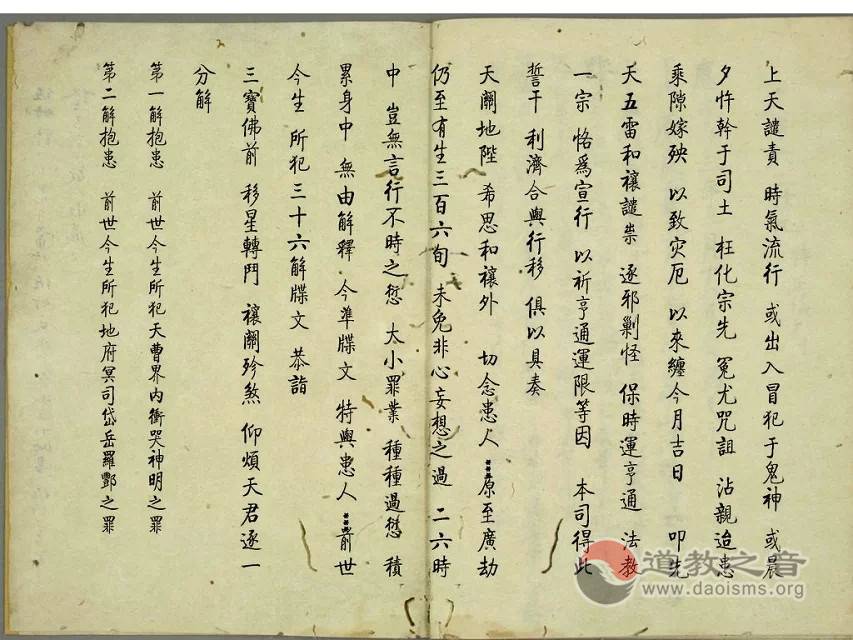 上天譴責 時氣流行 或出入冒犯于鬼神 或晨
夕忤幹于司土 枉化宗先 冤尤咒詛 沾親迨患
乘隙嫁殃 以致灾厄 以來纏今月吉日 叩先
天五雷和禳譴祟 逐邪剿怪 保時運亨通 法教
一宗 恪爲宣行 以祈亨通運限等因 本司得此
誓干 利濟合與行移 俱以具奏
天闕地陛 希思和禳外 切念患人 原至廣劫
仍至有生三百六旬 未免非心妄想之過 二六時
中 豈無言行不時之愆 大小罪業 種種過愆 積
累身中 無由解釋 今準牒文 特與患人 前世
今生 所犯三十六解牒文 恭詣
三寶佛前 移星轉鬥 禳關殄煞 仰煩天君逐一
分解
第一解抱患 前世今生所犯天曹界内衝哭神明之罪
第二解抱患 前世今生所犯地府冥司岱岳羅酆之罪
道教之音
www.daoisms.org